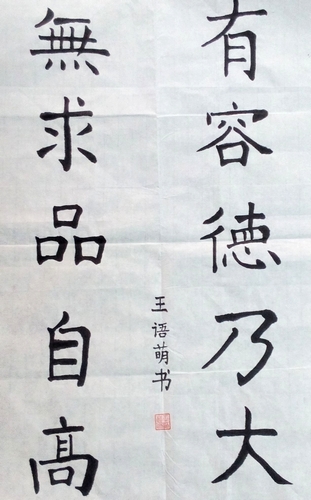 有容德乃大
無求品自高
王语萌书